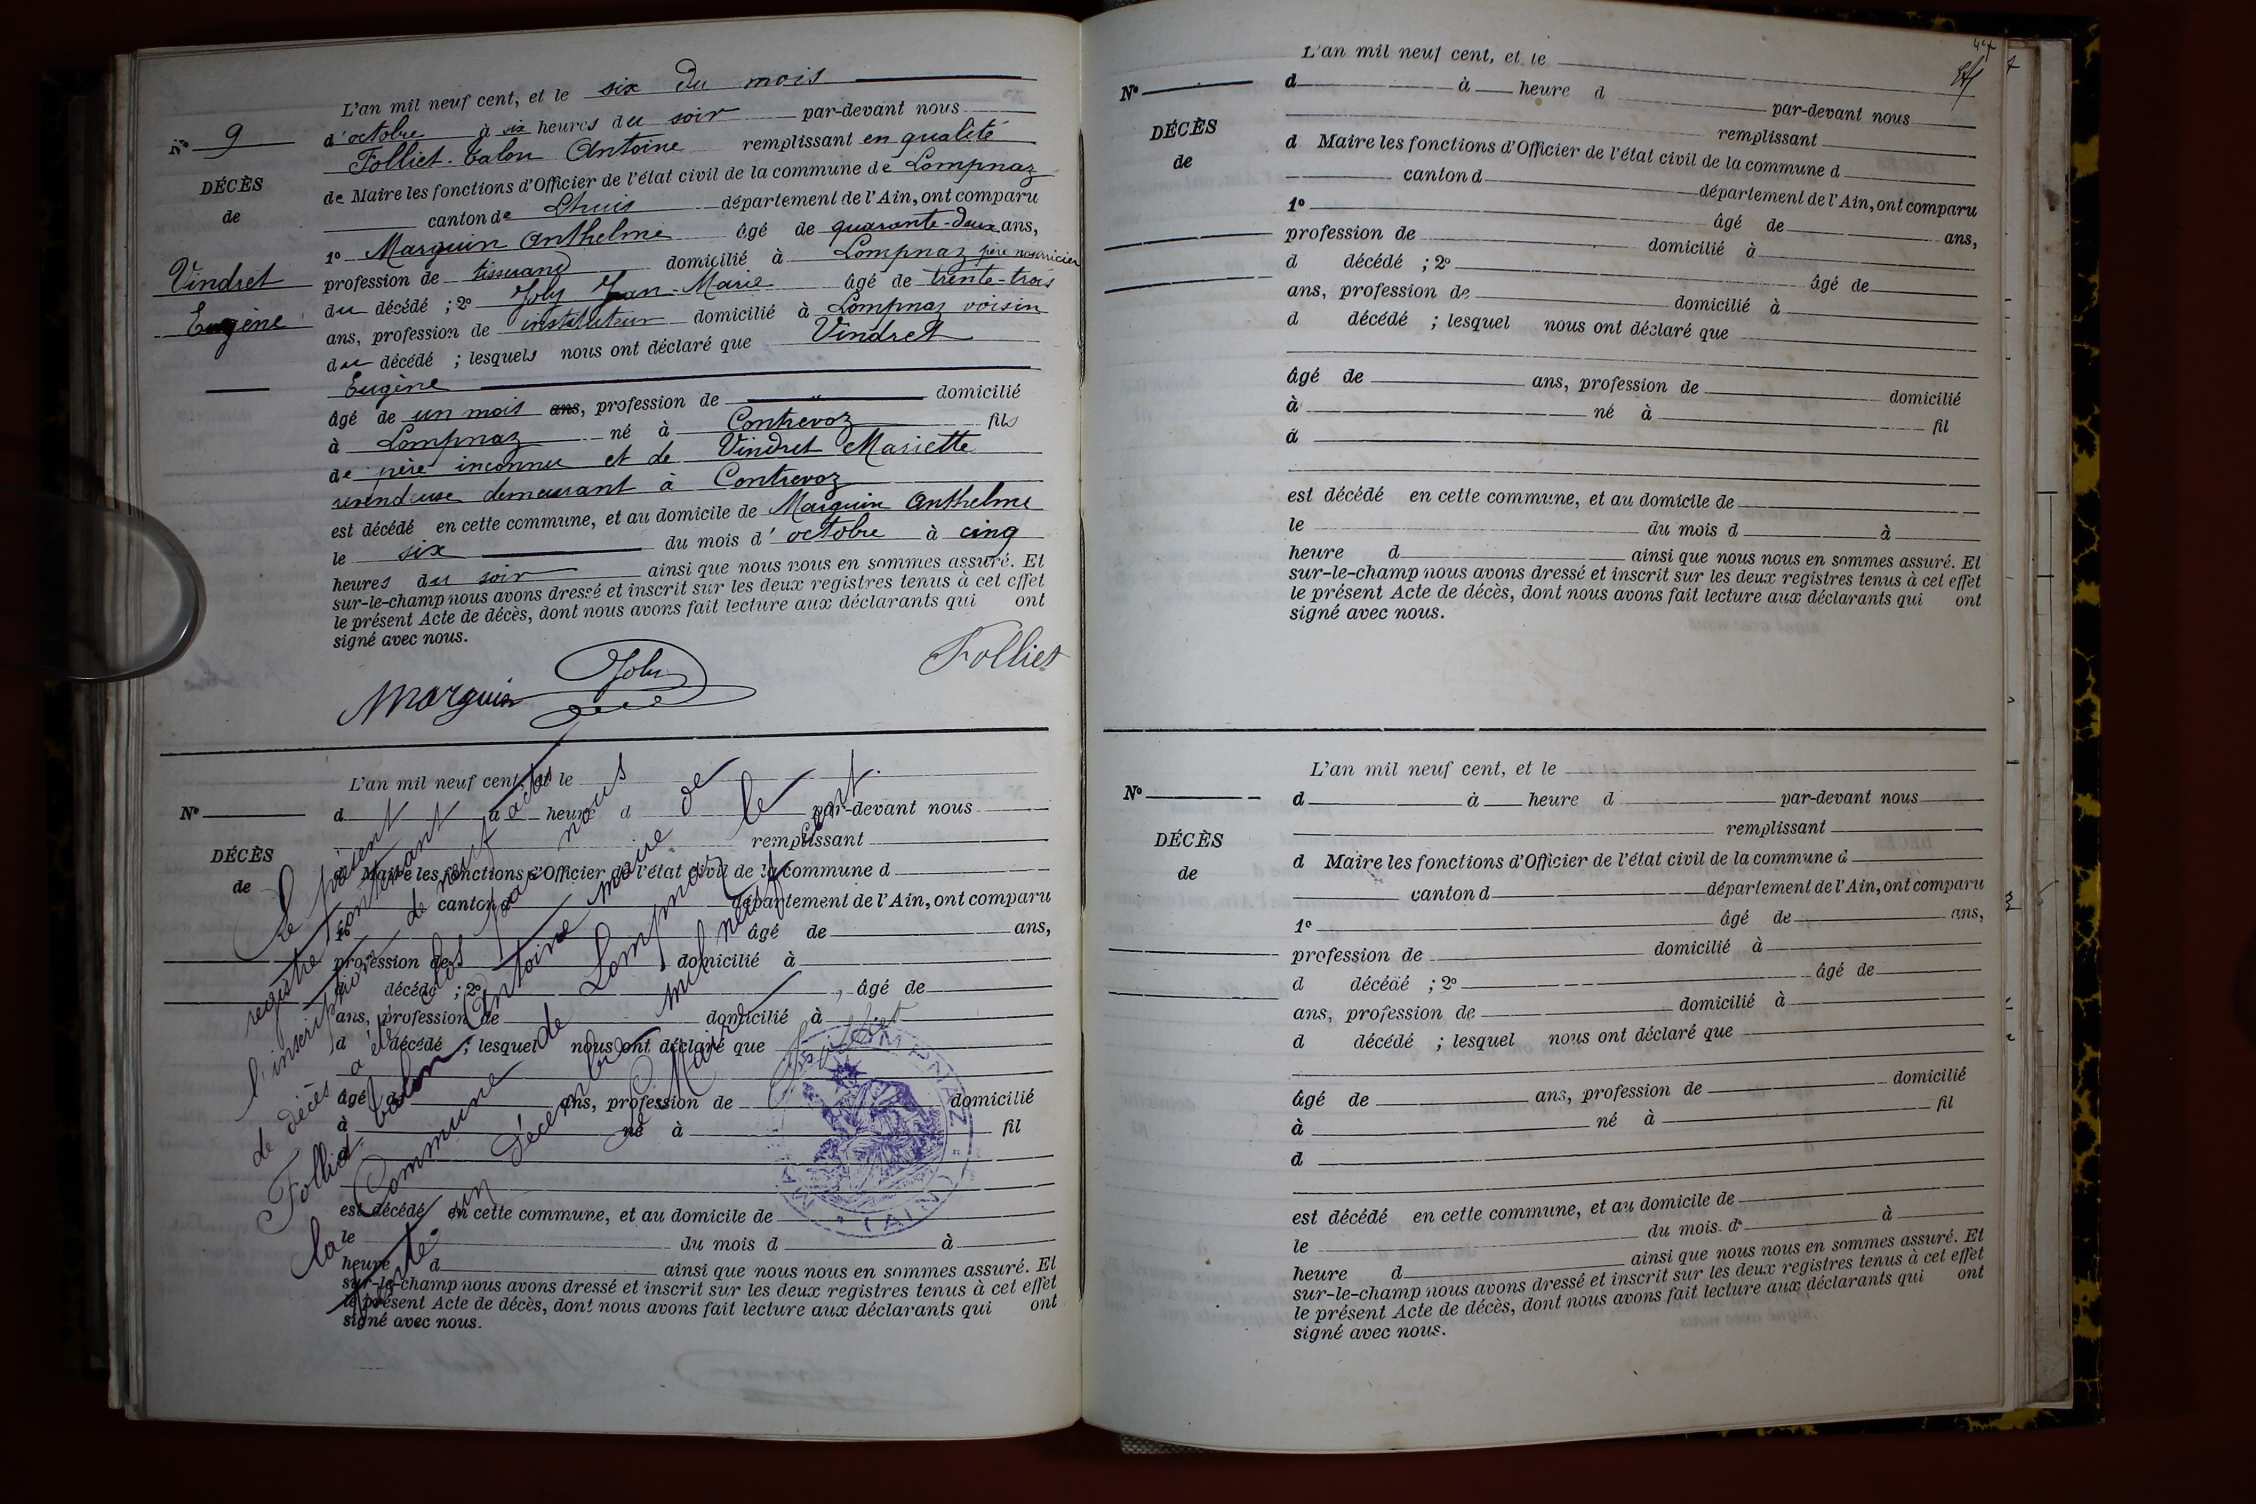 L'an mil neuf cent, et le six du mois
N° 9
d'octobre à six heures du soir par-devant nous
Folliet-Talon Antoine remplissant en qualité
DÉCÈS
de Maire les fonctions d'Officier de l'état civil de la commune de Lompnaz
de
canton de Lhuis département de l'Ain, ont comparu
1° Marquin Anthelme âgé de quarante-deux ans,
Vindret
profession de tisserand domicilié à Lompnaz père nourricier
du décédé ; 2° Joly Jean-Marie âgé de trente-trois
Eugène
ans, profession de instituteur domicilié à Lompnaz voisin
du décédé ; lesquels nous ont déclaré que Vindret
Eugène
âgé de un mois ans, profession de " domicilié
à Lompnaz né à Contrevoz fils
de père inconnu et de Vindret Mariette
revendeuse demeurant à Contrevoz
est décédé en cette commune, et au domicile de Marquin Anthelme
le six du mois d'octobre à cinq
heures du soir ainsi que nous nous en sommes assuré. Et
sur-le-champ nous avons dressé et inscrit sur les deux registres tenus à cet effet
le présent Acte de décès, dont nous avons fait lecture aux déclarants qui ont
signé avec nous.
Marquin Joly Folliet
L'an mil neuf cent, et le
N°
d à heure d par-devant nous
remplissant
DÉCÈS
d Maire les fonctions d'Officier de l'état civil de la commune d
de
canton d département de l'Ain, ont comparu
1° âgé de ans,
profession de domicilié à
d décédé ; 2° âgé de
ans, profession de domicilié à
d décédé ; lesquel nous ont déclaré que
âgé de ans, profession de domicilié
à né à fil
d
est décédé en cette commune, et au domicile de
le du mois d à
heure d ainsi que nous nous en sommes assuré. Et
sur-le-champ nous avons dressé et inscrit sur les deux registres tenus à cet effet
le présent Acte de décès, dont nous avons fait lecture aux déclarants qui ont
signé avec nous.
Le présent
registre contenant
l'inscription de neuf actes
de décès a été clos par nous
Folliet-Talon Antoine maire de
la Commune de Lompnaz le
trente-un décembre mil neuf cent.
Le Maire
Folliet
LOMPNAZ
(AIN)
L'an mil neuf cent, et le
N°
d à heure d par-devant nous
remplissant
DÉCÈS
d Maire les fonctions d'Officier de l'état civil de la commune d
de
canton d département de l'Ain, ont comparu
1° âgé de ans,
profession de domicilié à
d décédé ; 2° âgé de
ans, profession de domicilié à
d décédé ; lesquel nous ont déclaré que
âgé de ans, profession de domicilié
à né à fil
d
est décédé en cette commune, et au domicile de
le du mois d à
heure d ainsi que nous nous en sommes assuré. Et
sur-le-champ nous avons dressé et inscrit sur les deux registres tenus à cet effet
le présent Acte de décès, dont nous avons fait lecture aux déclarants qui ont
signé avec nous.
L'an mil neuf cent, et le
N°
d à heure d par-devant nous
remplissant
DÉCÈS
d Maire les fonctions d'Officier de l'état civil de la commune d
de
canton d département de l'Ain, ont comparu
1° âgé de ans,
profession de domicilié à
d décédé ; 2° âgé de
ans, profession de domicilié à
d décédé ; lesquel nous ont déclaré que
âgé de ans, profession de domicilié
à né à fil
d
est décédé en cette commune, et au domicile de
le du mois d à
heure d ainsi que nous nous en sommes assuré. Et
sur-le-champ nous avons dressé et inscrit sur les deux registres tenus à cet effet
le présent Acte de décès, dont nous avons fait lecture aux déclarants qui ont
signé avec nous.